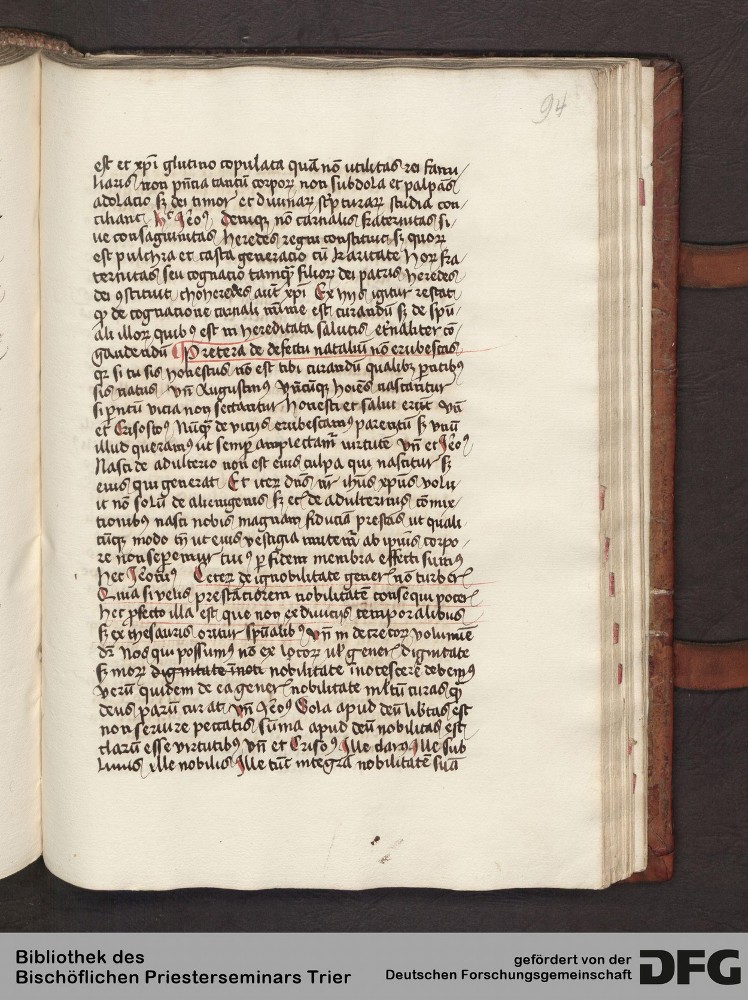 94
est et xp̄i glutino copulata quā nō utilitas rei famu/
liaris non pn̄cia tantū corporꝝ non subdola et palpās
adolacio sꝫ dei timor et divinarꝝ scripturarꝝ studia con/
ciliant
Deniqꝫ nō carnalis fraternitas si/
ve consagwinitas heredes regni constituit sꝫ quorꝝ
est pulchra et casta generacio cū karitate horꝝ fra/
ternitas seu cognacio tamqꝫ filiorꝝ dei patris heredes
dei ꝯstituit choheredes aut xp̄i Ex hijs igitur restat
ꝙ de cognacione carnali est curandū sꝫ de spū/
ali illorꝝ quibꝰ est in hereditata salutis et̄naliter cō/
gaudendū Preterea de defectu nataliū nō erubescas
qꝛ si tu sis honestus nō est tibi curandū qualibꝫ pn̄tibꝰ
sis natus vn̄ Augustinꝰ vn̄cūqꝫ hoīes nascantur
si pn̄tū vicia non sectantur honesti et salvi erūt vn̄
et Crisostoꝰ Nūqꝫ de vicijs erubescamꝰ parentū sꝫ vnū
illud queramꝰ ut semꝑ amplectamꝛ virtutē vn̄ et Jeroꝰ
Nasci de adulterio non est eius culpa qui nascitur sꝫ
eius qui generat Et iterꝝ dn̄s nr̄ ihūs xp̄us volu/
it nō solū de alienigenis sꝫ et de adulterinis cōmix/
tionibꝰ nasci nobis magnam fiduciā prestās ut quali/
cūqꝫ modo eius vestigia ab ipsius corpo/
re non seꝑemur cuiꝰ ꝑ fidem membra effecti sumꝰ
hec Jeronimꝰ Ceterꝝ de ignobilitate generꝭ nō turberꝭ
Quia si velis prestantiorem nobilitatē consequi poterꝭ
hec ꝓfecto illa est que non ex divicijs temporalibus
sꝫ ex thesauris oritur spūalibꝰ vn̄ in decretorꝝ volumīe
dꝛ Nos qui possumꝰ nō ex locorꝝ vel generꝭ dignitate
sꝫ morꝝ nobilitate īnotescere debemꝰ
verū quidem de ea generꝭ nobilitate curas qꝫ
deus parū curat vn̄ Jeroꝰ Sola apud deū lib̄tas est
non servire peccatis sūma apud deū nobilitas est
clarū esse virtutibꝰ vn̄ et Crisoꝰ Ille clarꝰ ille sub/
limis ille nobilis Ille tūc integrā nobilitatē suā
Bibliothek des
Bischöflichen Priesterseminars Trier
gefördert von der
Deutschen Forschungsgemeinschaft
DFG